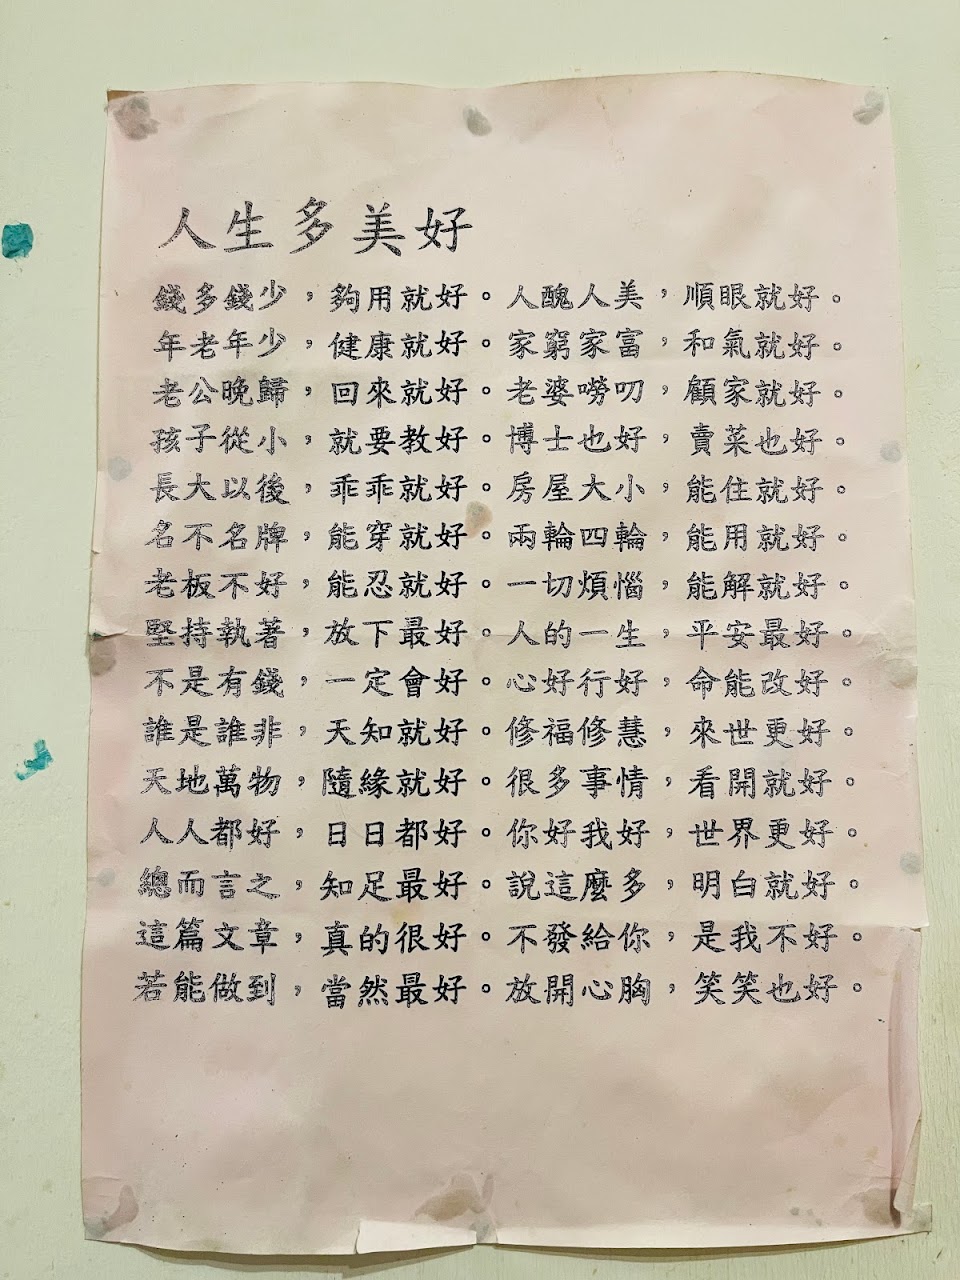 人生多美好
錢多錢少，夠用就好。人醜人美，順眼就好。
年老年少，健康就好。家窮家富，和氣就好。
老公晚歸，回來就好。老婆嘮叨，顧家就好。
孩子從小，就要教好。博士也好，賣菜也好。
長大以後，乖乖就好。房屋大小，能住就好。
名不名牌，能穿就好。兩輪四輪，能用就好。
老板不好，能忍就好。一切煩惱，能解就好。
堅持執著，放下最好。人的一生，平安最好。
不是有錢，一定會好。心好行好，命能改好。
誰是誰非，天知就好。修福修慧，來世更好。
天地萬物，隨緣就好。很多事情，看開就好。
人人都好，日日都好。你好我好，世界更好。
總而言之，知足最好。說這麼多，明白就好。
這篇文章，真的很好。不發給你，是我不好。
若能做到，當然最好。放開心胸，笑笑也好。